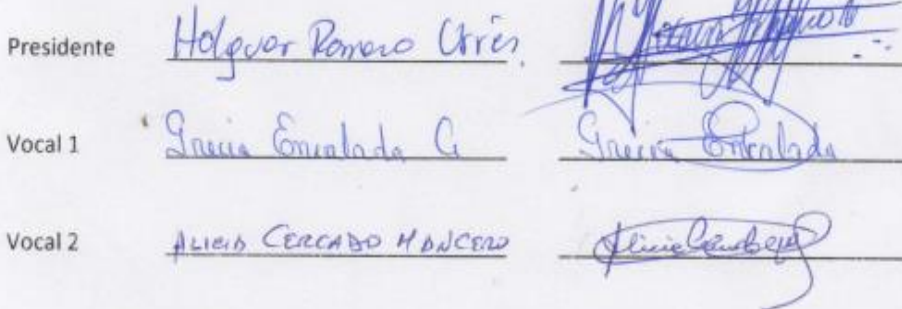 Presidente Holguer Romero Urrés
Vocal 1 Grecia Encalada G Grecia Encalada
Vocal 2 ALICIA CERCADO MANCERO